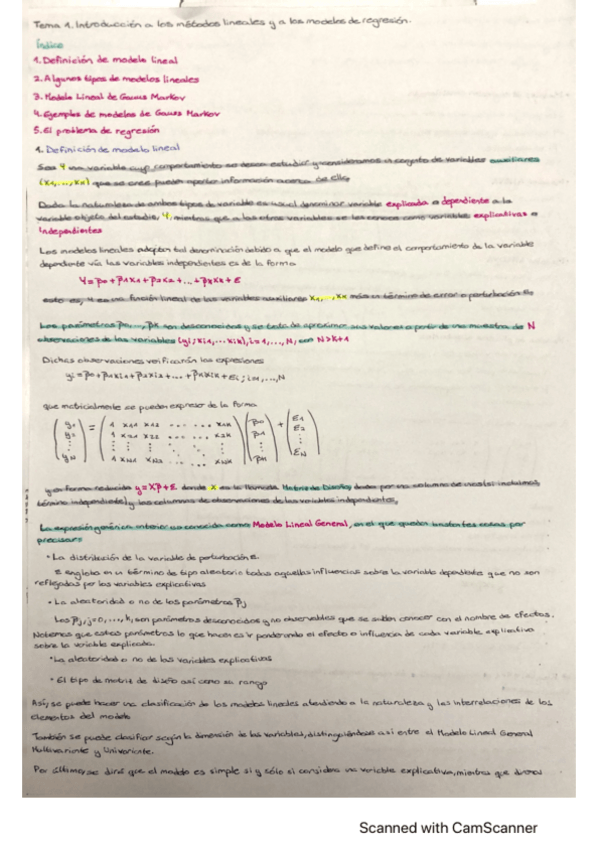 Tema 1. Introducción a los métodos lineales y a los modelos de regresión.
Índice
1. Definición de modelo lineal
2. Algunos tipos de modelos lineales
3. Modelo Lineal de Gauss Markov
4. Ejemplos de modelos de Gauss Markov
5. El problema de regresión
1. Definición de modelo lineal
Sea Y una variable cuyo comportamiento se desea estudiar y consideramos un conjunto de variables auxiliares
(x1,...,xk) que se cree pueden aportar información acerca de ella.
Dada la naturaleza de ambos tipos de variable es usual denominar variable explicada o dependiente a la
variable objeto del estudio, Y, mientras que a las otras variables se les conoce como variables explicativas o
independientes
Los modelos lineales adoptan tal denominación debido a que el modelo que define el comportamiento de la variable
dependiente vía las variables independientes es de la forma
Y = β0 + β1x1 + β2x2 + ... + βkxk + ε
esto es, Y es una función lineal de las variables auxiliares x1,...,xk más un término de error o perturbación ε.
Los parámetros β0,..., βk son desconocidos y se trata de aproximar sus valores a partir de una muestra de N
observaciones de las variables (yi; xi1,...,xik), i=1,...,N, con N>k+1
Dichas observaciones verificarán las expresiones
que matricialmente se pueden expresar de la forma
y en forma reducida y = Xβ + ε donde X es la llamada Matriz de Diseño, dada por una columna de unos (si incluimos
término independiente) y las columnas de observaciones de las variables independientes.
La expresión genérica anterior es conocida como Modelo Lineal General, en el que quedan bastantes cosas por
precisar:
• La distribución de la variable de perturbación ε.
ε engloba en un término de tipo aleatorio todas aquellas influencias sobre la variable dependiente y que no son
reflejadas por las variables explicativas
• La aleatoridad o no de los parámetros βj
Los βj, j=0,...,k, son parámetros desconocidos y no observables que se suelen conocer con el nombre de efectos.
Notemos que estos parámetros lo que hacen es ir ponderando el efecto o influencia de cada variable explicativa
sobre la variable explicada.
• La aleatoridad o no de las variables explicativas
• El tipo de matriz de diseño así como su rango
Así, se puede hacer una clasificación de los modelos lineales atendiendo a la naturaleza y las interrelaciones de los
elementos del modelo
También se puede clasificar según la dimensión de las variables, distinguiéndose así entre el Modelo Lineal General
Multivariante y Univariante.
Por último, se dirá que el modelo es simple si y sólo si considera una variable explicativa, mientras que diremos
Scanned with CamScanner